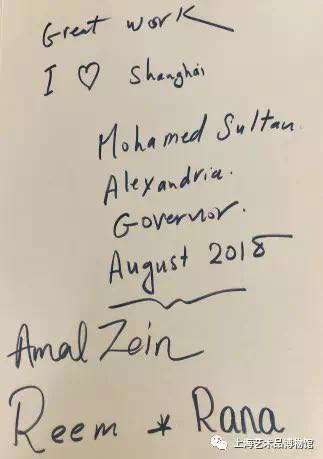 Great work
I ♡ Shanghai
Mohamed Sultan.
Alexandria.
Governor.
August 2018
Amal Zein
Reem * Rana
上海艺术品博物馆